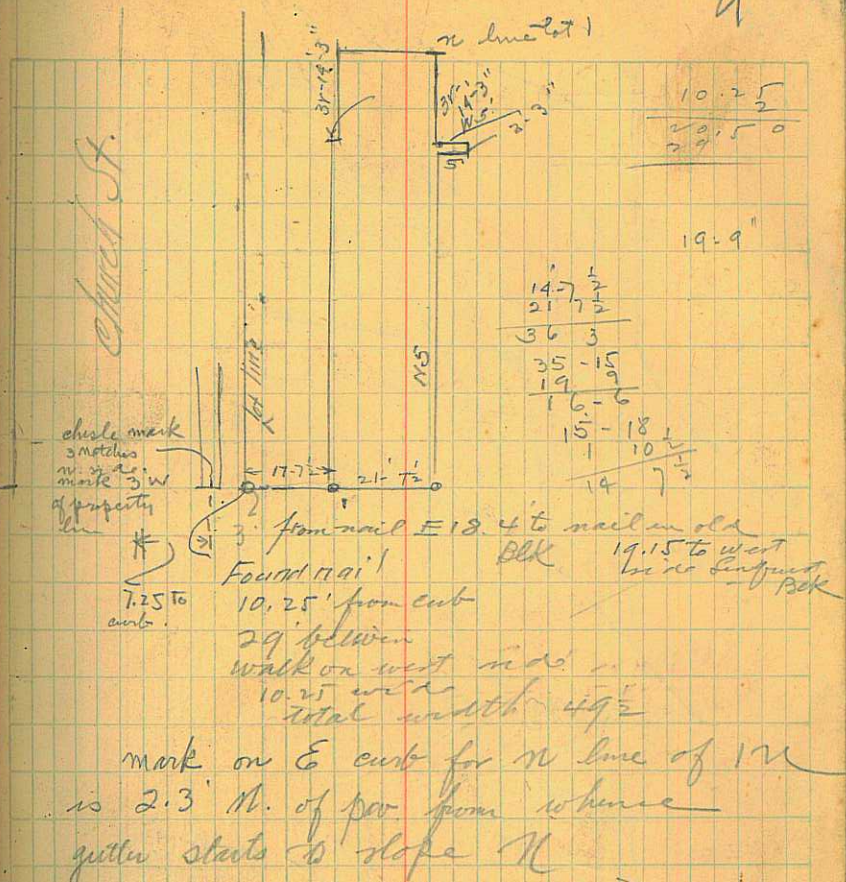 n line lot 1
3r-14'-3"
3r-
14-3"
N-5.
3-3"
5
10.25
2
20.50
29
19-9"
Church St.
14-7 1/2
21 7 1/2
36 3
35-15
19 9
16-6
15-18
1 10 1/2
14 7 1/2
N5
lot line
chisle mark
3 notches
mark 3 W
of property
line
17-7 1/2
21-7 1/2
1
2
3' from nail E 18.4' to nail in old
Blk
19.15 to west
side
Bck
7.25 to
curb.
Found nail
10.25' from curb
29' between
walk on west side
10.25 wide
total width 49 1/2
mark on E curb for n line of
is 2.3' N. of from whence
gutter starts to slope N